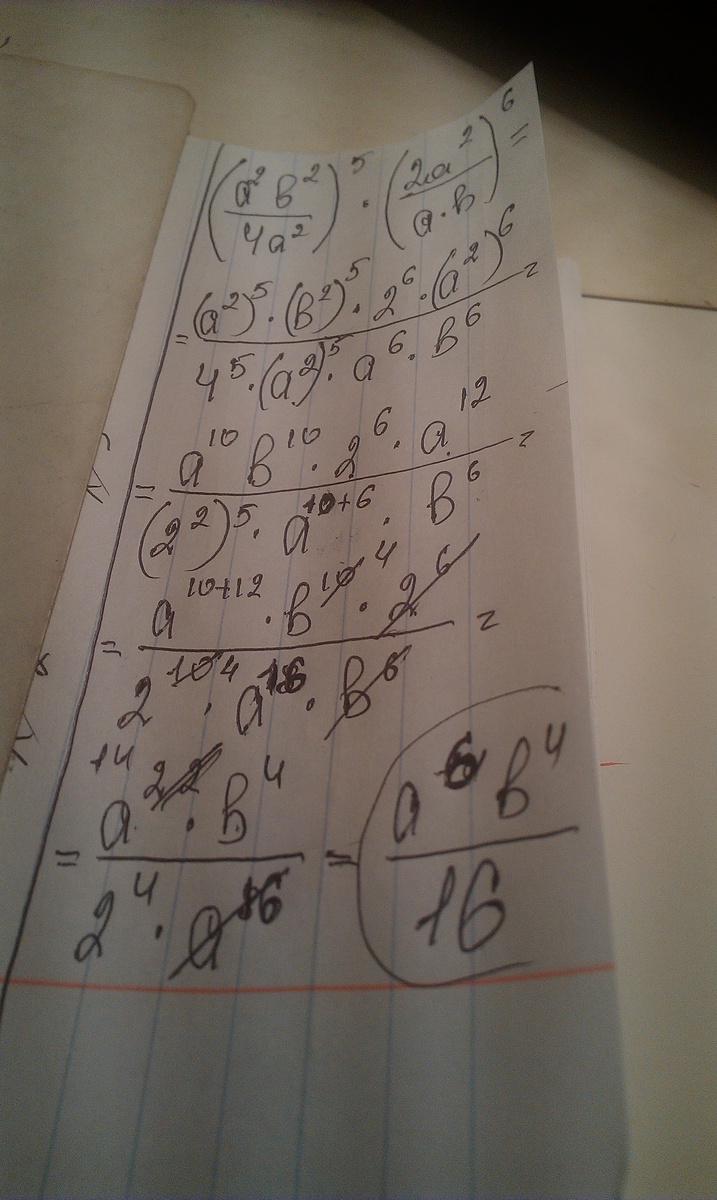 (a² b² / 4a²)⁵ · (2a² / a·b)⁶ =
= (a²)⁵ · (b²)⁵ · 2⁶ · (a²)⁶ / 4⁵ · (a²)⁵ · a⁶ · b⁶ =
= a¹⁰ b¹⁰ · 2⁶ · a¹² / (2²)⁵ · a¹⁰⁺⁶ · b⁶ =
= a¹⁰⁺¹² · b¹⁰ ⁴ · 2⁶ / 2¹⁰ ⁴ · a¹⁶ · b⁶ =
= a²² · b⁴ / 2⁴ · a¹⁶ = a⁶ b⁴ / 16